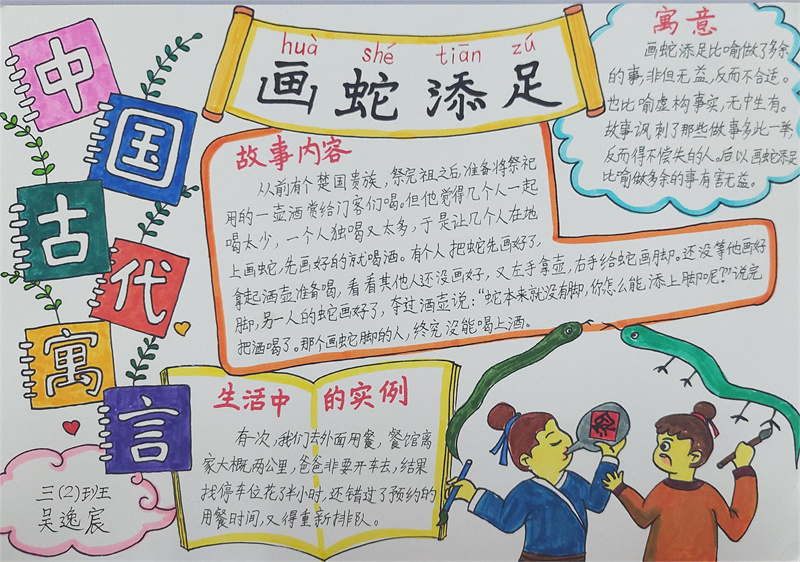 中
国
古
代
寓
言
huà shé tiān zú
画蛇添足
故事内容
从前有个楚国贵族，祭完祖之后，准备将祭祀
用的一壶酒赏给门客们喝。但他觉得几个人一起
喝太少，一个人独喝又太多，于是让几个人在地
上画蛇，先画好的就喝酒。有个人把蛇先画好了，
拿起酒壶准备喝，看看其他人还没画好，又左手拿壶，右手给蛇画脚。还没等他画好
脚，另一人的蛇画好了，夺过酒壶说："蛇本来就没有脚，你怎么能添上脚呢？"说完
把酒喝了。那个画蛇脚的人，终究没能喝上酒。
寓意
画蛇添足比喻做了多余
的事，非但无益，反而不合适。
也比喻虚构事实，无中生有。
故事讽刺了那些做事多此一举，
反而得不偿失的人。后以画蛇添足
比喻做多余的事有害无益。
生活中的实例
有一次，我们去外面用餐，餐馆离
家大概两公里，爸爸非要开车去，结果
找停车位花了半小时，还错过了预约的
用餐时间，又得重新排队。
三(2)班
吴逸宸